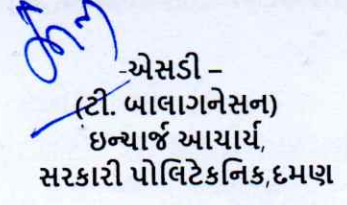 -એસડી –
(ટી. બાલાગનેસન)
ઇન્ચાર્જ આચાર્ય,
સરકારી પોલિટેકનિક,દમણ